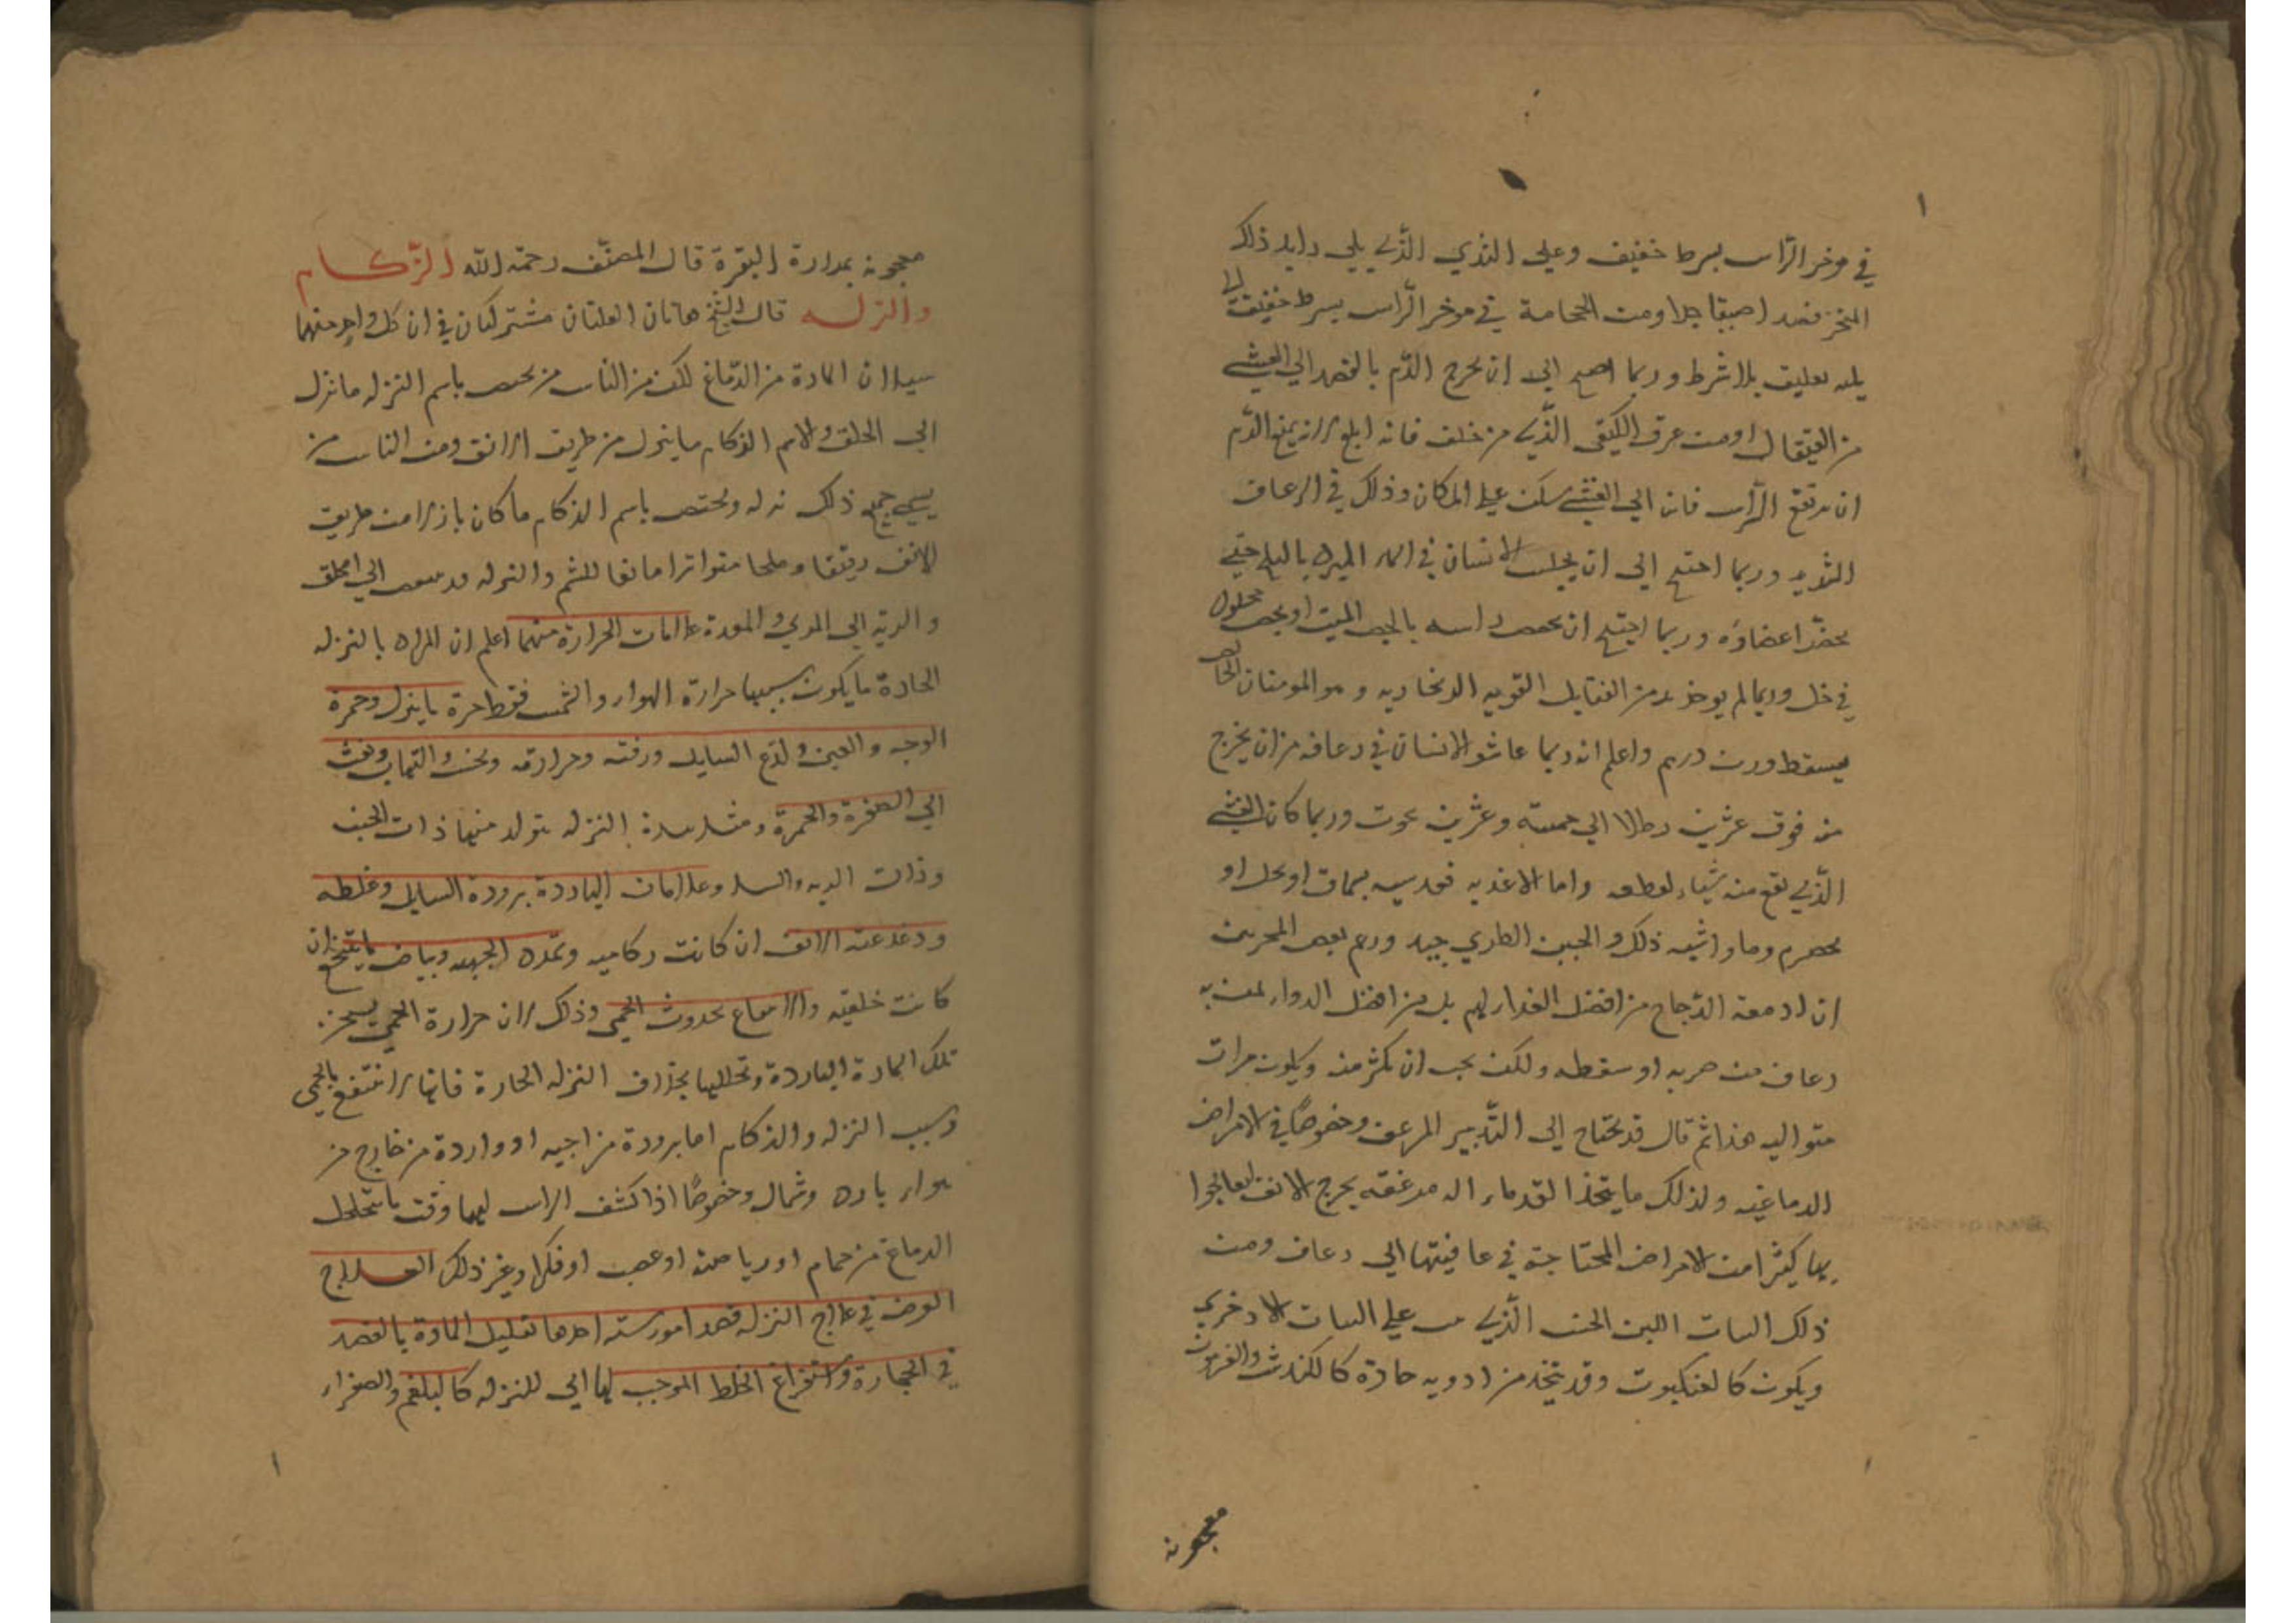 في موخر الراس بسرط خفيف وعلى الثدي الذي يلي دايد ذلك
المنخر فصد ا صيقا جدا ومن الحجامة في موخر الراس بسرط خفيف الى
يليه تعليق بلا شرط وربما احتيج الى ان يخرج الدم بالفصد الي الغشي
من القيفال او من عرق الكتفي الذي من خلف فانه ابلغ لانه يمنع الدم
ان يرتفع الراس فان الي الغشي سكن على المكان وذلك في الرعاف
الشديد وربما احتيج الى ان يجلس الانسان في الماء المبرد بالثلج حتى
يخضر اعضاؤه وربما احتيج ان يجصص راسه بالجص الميت او بجص محلول
في خل وربما لم يوجد بد من الفتايل القويه الزنجاريه و هو المومنان الخالص
يسقط وزن درهم واعلم انه ربما عاش الانسان في رعافه من ان يخرج
منه فوق عشرين رطلا الي خمسة وعشرين يموت وربما كان الغشي
الذي يقع منه شياء لقطعه واما الاغذيه فعدسيه بسماق او بخل او
بحصرم وما اشبه ذلك والجبن الطري جيد وزعم بعض المجربين
ان ادمغة الدجاج من افضل الغداء لهم بل من افضل الدواء لمن به
رعاف من ضربه او سقطه ولكن يجب ان يكثر منه ويكون مرات
متواليه هذا ثم قال قد يحتاج الى التدبير المرعف وخصوصا في الامراض
الدماغيه ولذلك ما يتخذ القدماء اله مرعفه يجرح الانف ليعالجوا
بها كثيرا من الامراض المحتاجة في عافيتها الي رعاف ومن
ذلك النبات اللين الخشن الذي ينبت علي النبات الاذخري
ويكون كالعنكبوت وقد يتخذ من ادويه حادة كالكندش والفربيون
معجونة
معجونه بمرارة البقرة قال المصنف رحمة الله الزكام
والنزله قال الشيخ هاتان العلتان مشتركتان في ان كل واحد منهما
سيلان المادة من الدماغ لكن من الناس من يخص باسم النزله ما نزل
الى الحلق والاسم الزكام ما ينزل من طريق الانف ومن الناس من
يسمي جميع ذلك نزله ويختص باسم الزكام ما كان نازلا من طريق
الانف رقيقا وملحا متواترا مانعا للشم والنزله قد تنصب الي الحلق
والرية الى المري والمعدة علامات الحرارة منهما اعلم ان المراد بالنزله
الحادة ما يكون سببها حرارة الهواء والشمس فقط حمرة ما ينزل وحمرة
الوجه والعين ولذع السايل ورقته وحرارته ونخس والتهاب ونفث
الي الصفرة والحمرة ومثل هذه النزله يتولد منها ذات الجنب
وذات الريه والسل وعلامات الباردة برودة السايل وغلظه
ودغدغة الانف ان كانت زكاميه وتمدد الجبهه وبياض ما يتنخع ان
كانت خلقيه والانتفاع بحدوث الحمى وذلك لان حرارة الحمى يسخن
تلك المادة الباردة وتحللها بخلاف النزله الحارة فانها لا تنتفع بالحمى
وسبب النزله والزكام اما برودة مزاجيه او واردة من خارج من
هواء بارد وشمال وخصوصا اذا كشف الراس لهما وقت ما يتحلحل
الدماغ من حمام او رياضة او غضب او فكر او غير ذلك العلاج
الغرض في علاج النزله قصد امور ستة احدها تقليل المادة بالفصد
في الحجارة واستفراغ الخلط الموجب لها اى للنزله كالبلغم والصفراء